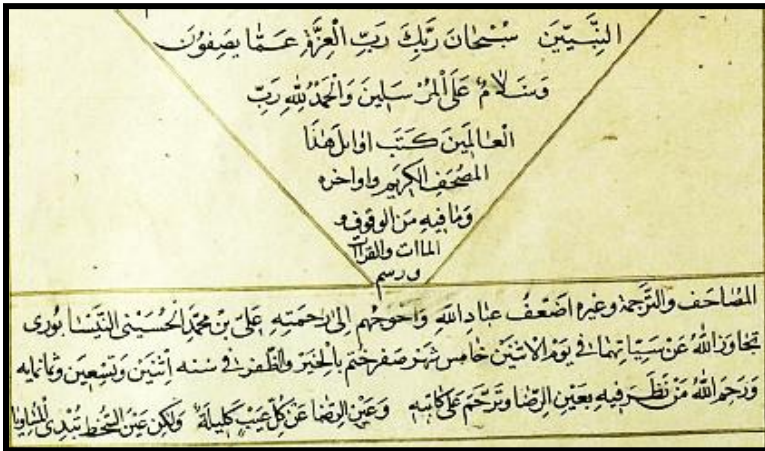 النَّبِيّينَ سُبْحَانَ رَبِّكَ رَبِّ الْعِزَّةِ عَمَّا يَصِفُونَ
وَسَلَامٌ عَلَى الْمُرْسَلِينَ وَالْحَمْدُ لِلّٰهِ رَبِّ
الْعَالَمِينَ كَتَبَ اوايل هٰذَا
المصْحَفِ الكَرِيمِ واواخره
وَمَا فِيهِ مِنَ الوقوف و
الماات والقراآت
ورسم
المصَاحف والتَّرجَمة وغيره اضْعَفُ عِبَادِ اللهِ وَاَحْوَجُهُم اِلىٰ رَحمَتِهِ عَلىّ بْن محمّد الحُسَيْنِى النيسَابُورى
تجَاوَزَ اللهُ عَنْ سَيّاتِهمَا فى يَوْمِ الاثنَيْن خامِس شهْر صفر ختم بالخيْر والظّفر فى سنه اثنَيْن وَتسْعِين وثمانمايه
وَرَحِمَ اللهُ مَنْ نَظَرَ فِيهِ بِعَيْنِ الرِّضَا وَتَرَحَّمَ عَلى كاتبه وَعَيْن الرِّضا عَنْ كُلّ عَيْب كَلِيلَة وَلكِن عَيْن السُّخطِ تُبْدِى المسَاويا